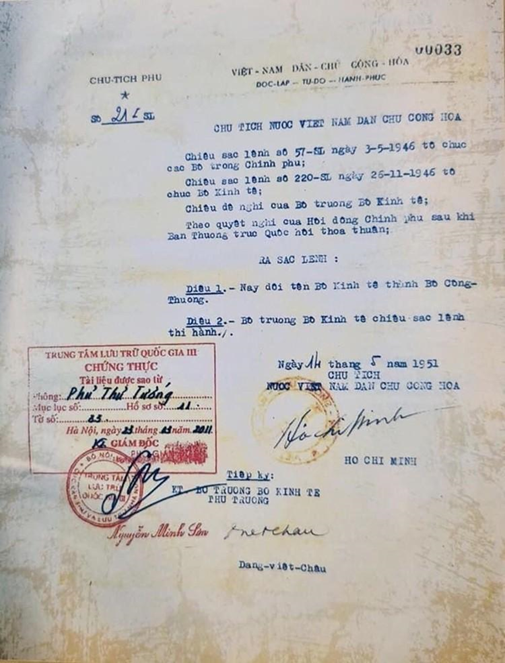 00033
CHU-TICH PHU
Số 21 SL
VIỆT-NAM DÂN-CHỦ CỘNG-HÒA
ĐỘC-LẬP — TỰ-DO — HẠNH-PHÚC
CHU TICH NUOC VIET NAM DAN CHU CONG HOA
Chiêu sac lệnh số 57-SL ngày 3-5-1946 tô chuc
cac Bô trong Chinh phu;
Chiêu sac lệnh số 220-SL ngày 26-11-1946 tô
chuc Bô Kinh tê;
Chiêu đê nghi cua Bô truong Bô Kinh tê;
Theo quyêt nghi cua Hôi đông Chinh phu sau khi
Ban Thuong truc Quôc hôi thoa thuân;
RA SAC LENH :
Diêu 1.- Nay đôi tên Bô Kinh tê thành Bô Công-
Thuong.
Diêu 2.- Bô truong Bô Kinh tê chiêu sac lệnh
thi hành./.
Ngày 14 thang 5 năm 1951
CHU TICH
NUOC VIET NAM DAN CHU CONG HOA
HO CHI MINH
TRUNG TÂM LƯU TRỮ QUỐC GIA III
CHỨNG THỰC
Tài liệu được sao từ
Phông: Phủ Thủ Tướng
Mục lục số: Hồ sơ số: 11
Tờ số: 23
Hà Nội, ngày 23 tháng 13 năm 2011
GIÁM ĐỐC
TRUNG TÂM
LƯU TRỮ
QUỐC GIA III
Nguyễn Minh Sơn
Tiêp ky:
KT. BÔ TRUONG BÔ KINH TÊ
THU TRUONG
Dang-viêt-Châu